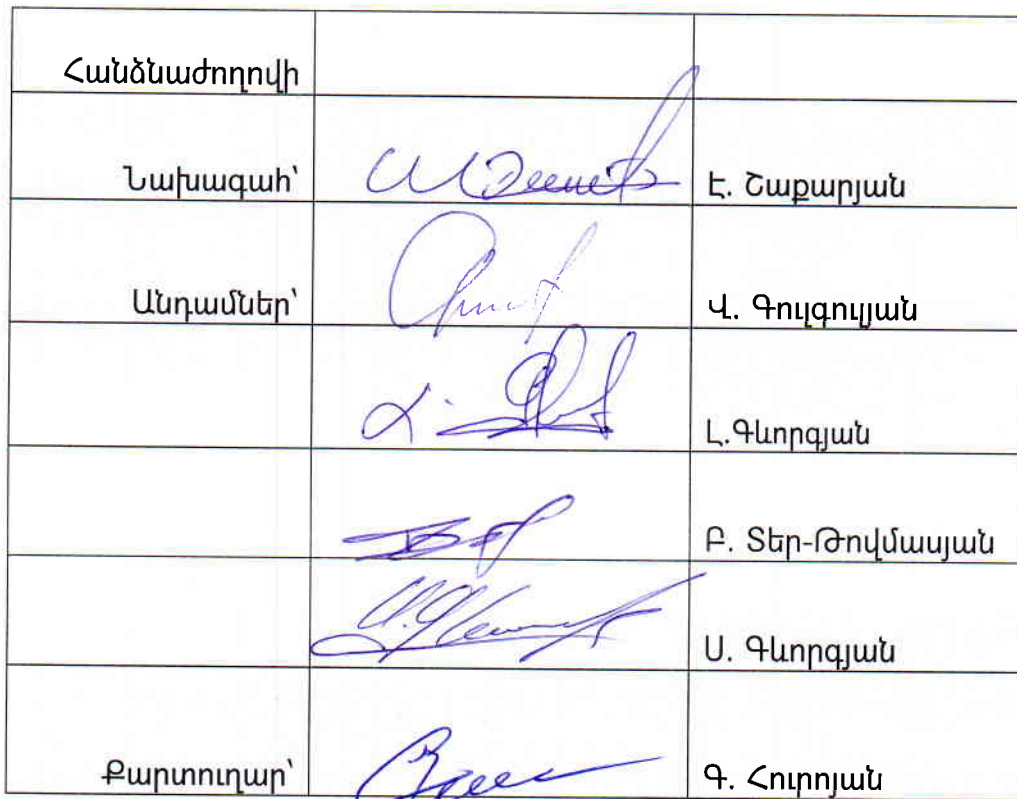 Հանձնաժողովի
Նախագահ՝ Է. Շաքարյան
Անդամներ՝ Վ. Գուլգուլյան
Լ.Գևորգյան
Բ. Տեր-Թովմասյան
Ս. Գևորգյան
Քարտուղար՝ Գ. Հուրոյան